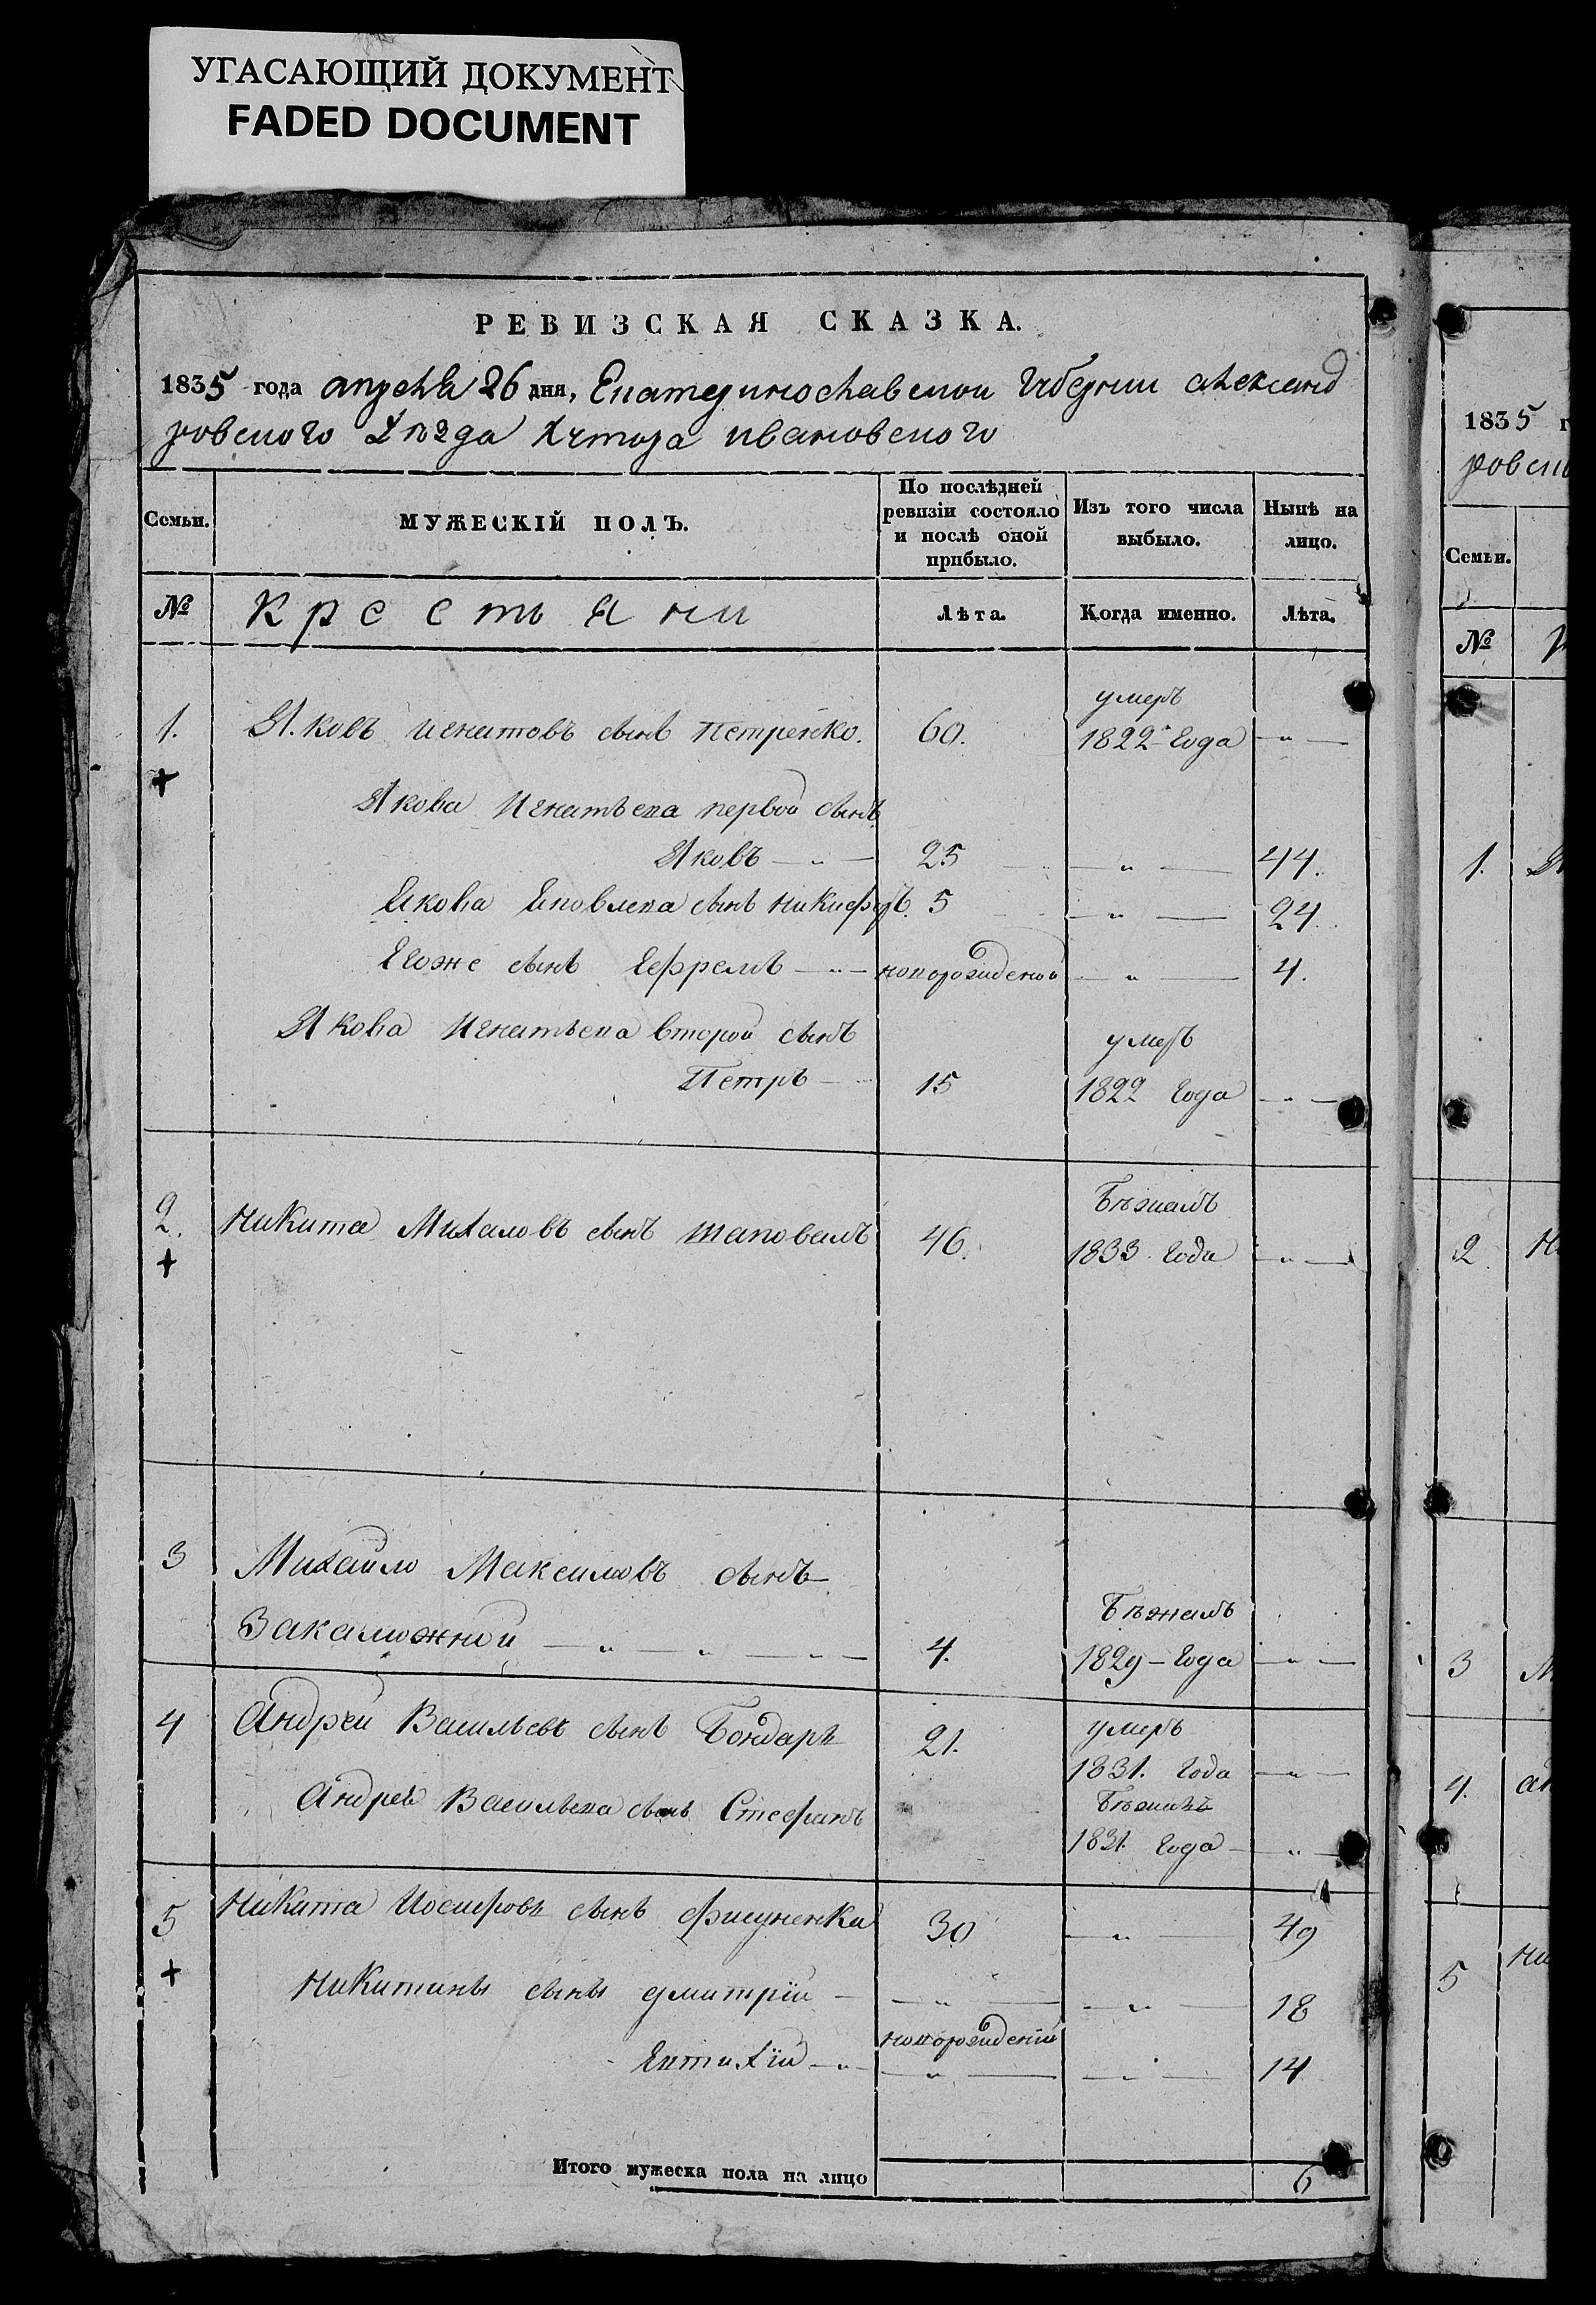 УГАСАЮЩИЙ ДОКУМЕНТ
FADED DOCUMENT
РЕВИЗСКАЯ СКАЗКА.
1835 года апреля 26 дня, Екатеринославской Губернии Александ
ровского Уѣзда Хутора Ивановского
Семьи.
МУЖЕСКІЙ ПОЛЪ.
По послѣдней ревизіи состояло и послѣ оной прибыло.
Изъ того числа выбыло.
Нынѣ на лицо.
№ Крестьяни Лѣта. Когда именно. Лѣта.
умеръ
1. Яковъ Игнатовъ сынъ Петренко. 60. 1822 Года — „ —
Якова Игнатьева первой сынъ
Яковъ — „ — 25 — „ — 44.
Якова Яковлева сынъ Никифоръ. 5 — „ — 24.
Егоже сынъ Ефремъ — „ — новорожденой — „ — 4.
Якова Игнатьева второй сынъ умеръ
Петръ — „ 15 1822 Года — „ —
Бѣжалъ
2. Никита Михаловъ сынъ Шаповалъ 46. 1833 Года — „ —
3 Михайло Максимовъ сынъ
Бѣжалъ
Закаложной — „ — „ — „ — 4. 1829 – Года — „ —
4 Андрей Васильевъ сынъ Бондарь 21. умеръ
1831. Года — „ —
Андрея Васильева сынъ Стефанъ Бѣжалъ
1831. Года — „ —
5 Никита Иосифовъ сынъ Фисуненка 30 — „ — 49
Никитины сыны Дмитрій — — „ — — „ — 18
новорожденій
Евтихій — „ — — „ — — „ — 14
Итого мужеска пола на лицо 6
1835 г
ровско
Семьи.
№
1. Я
2 Ни
3 М
4. Ан
5 Ни